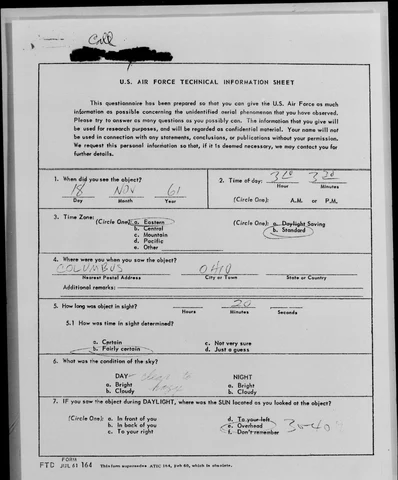 Call
U.S. AIR FORCE TECHNICAL INFORMATION SHEET
This questionnaire has been prepared so that you can give the U.S. Air Force as much
information as possible concerning the unidentified aerial phenomenon that you have observed.
Please try to answer as many questions as you possibly can. The information that you give will
be used for research purposes, and will be regarded as confidential material. Your name will not
be used in connection with any statements, conclusions, or publications without your permission.
We request this personal information so that, if it is deemed necessary, we may contact you for
further details.
1. When did you see the object?
18 NOV 61
Day Month Year
2. Time of day: 3 20
Hour Minutes
(Circle One): A.M. or P.M.
3. Time Zone:
(Circle One): a. Eastern
b. Central
c. Mountain
d. Pacific
e. Other
(Circle One): a. Daylight Saving
b. Standard
4. Where were you when you saw the object?
COLUMBUS OHIO
Nearest Postal Address City or Town State or Country
Additional remarks:
5. How long was object in sight? 20
Hours Minutes Seconds
5.1 How was time in sight determined?
a. Certain
b. Fairly certain
c. Not very sure
d. Just a guess
6. What was the condition of the sky?
DAY clear to
a. Bright hazy
b. Cloudy
NIGHT
a. Bright
b. Cloudy
7. IF you saw the object during DAYLIGHT, where was the SUN located as you looked at the object?
(Circle One): a. In front of you
b. In back of you
c. To your right
d. To your left
e. Overhead 30-40°
f. Don't remember
FORM
FTD JUL 61 164 This form supersedes ATIC 164, Feb 60, which is obsolete.